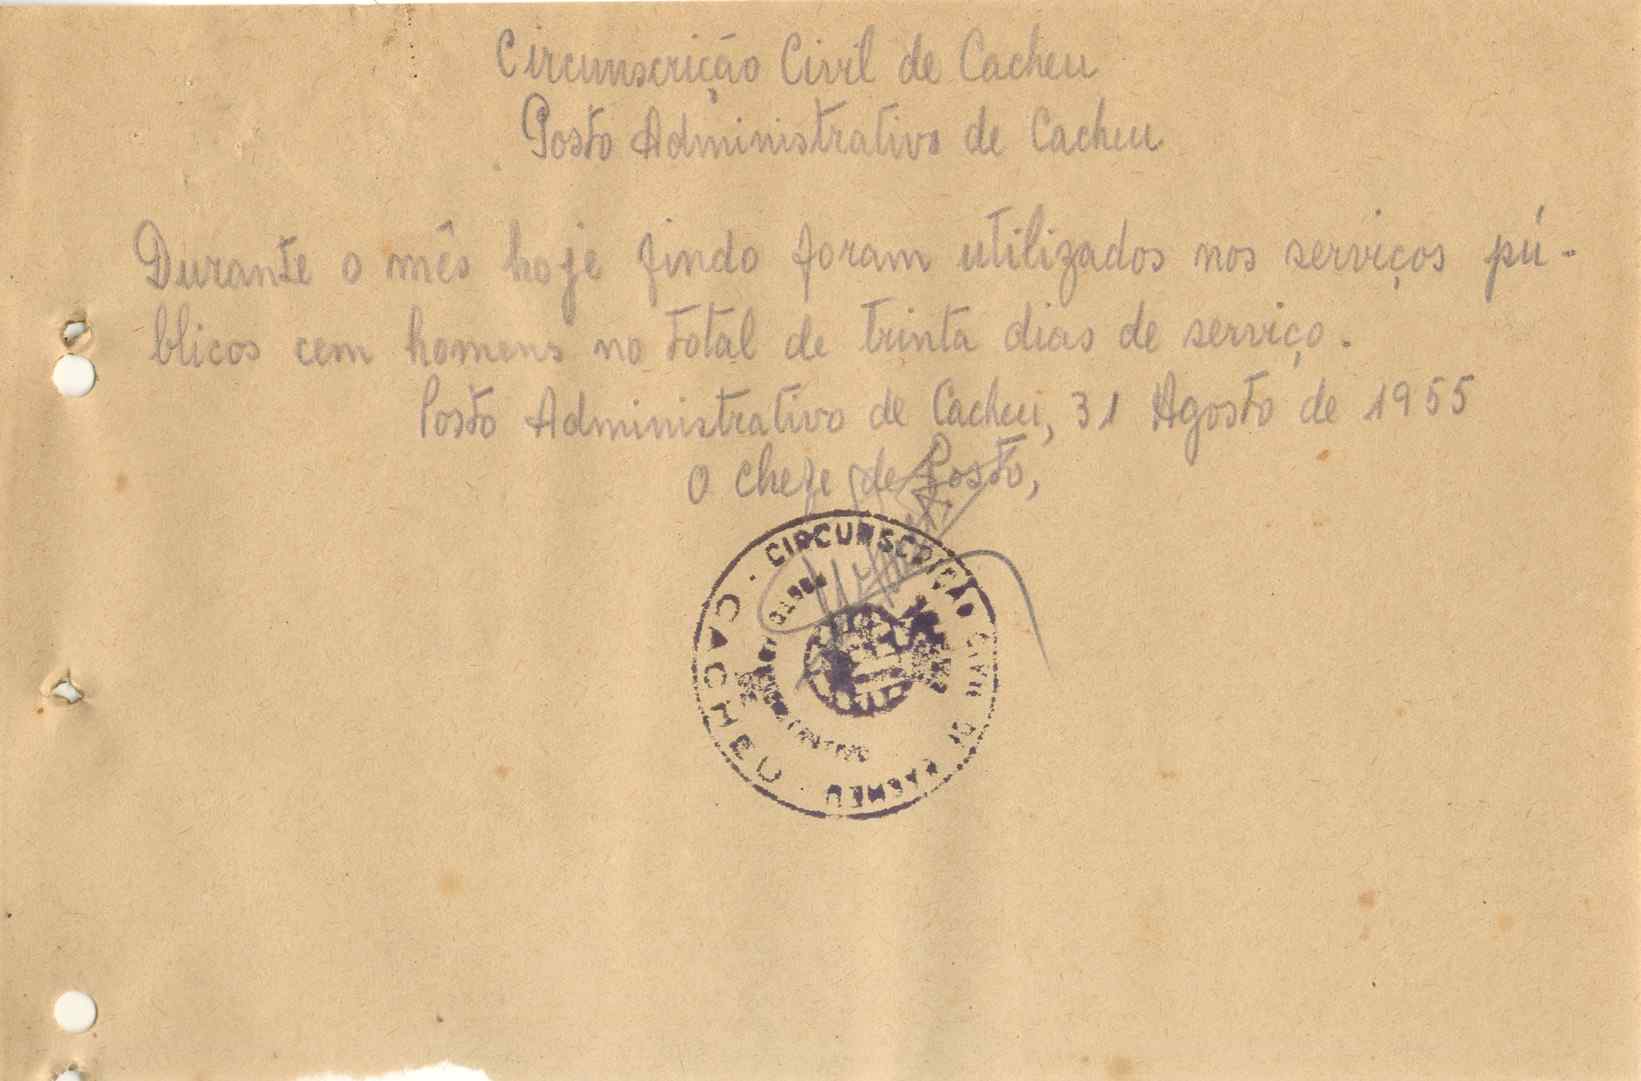 Circunscrição Civil de Cacheu
Posto Administrativo de Cacheu
Durante o mês hoje findo foram utilizados nos serviços pú-
blicos cem homens no total de trinta dias de serviço.
Posto Administrativo de Cacheu, 31 Agosto de 1955
O Chefe de Posto,
CIRCUNSCRIÇÃO CIVIL DE CACHEU
CACHEU